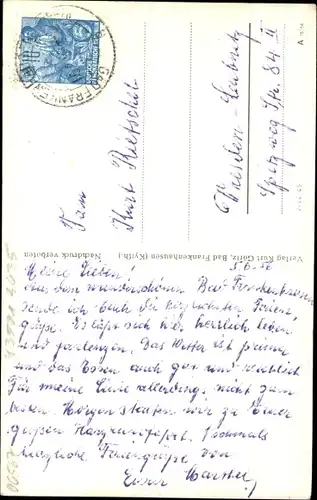 BAD FRANKENHAUSEN
Fam.
Kurt Rietschel
Dresden-Leubnitz
Spitzweg Str. 84 II
A
Verlag Kurt Goritz, Bad Frankenhausen (Kyffh.) Nachdruck verboten
5.6.56
Meine Lieben!
Aus dem wunderschönen Bad-Frankenhausen
sende ich Euch die herzlichsten Ferien-
grüße. Es läßt sich hier herrlich leben
und faulenzen. Das Wetter ist prima
und das Essen auch gut und reichlich
Für meine Linie allerdings nicht zum
besten. Morgen starten wir zu einer
großen Harzrundfahrt. Nochmals
herzliche Feriengrüße von
Eurer